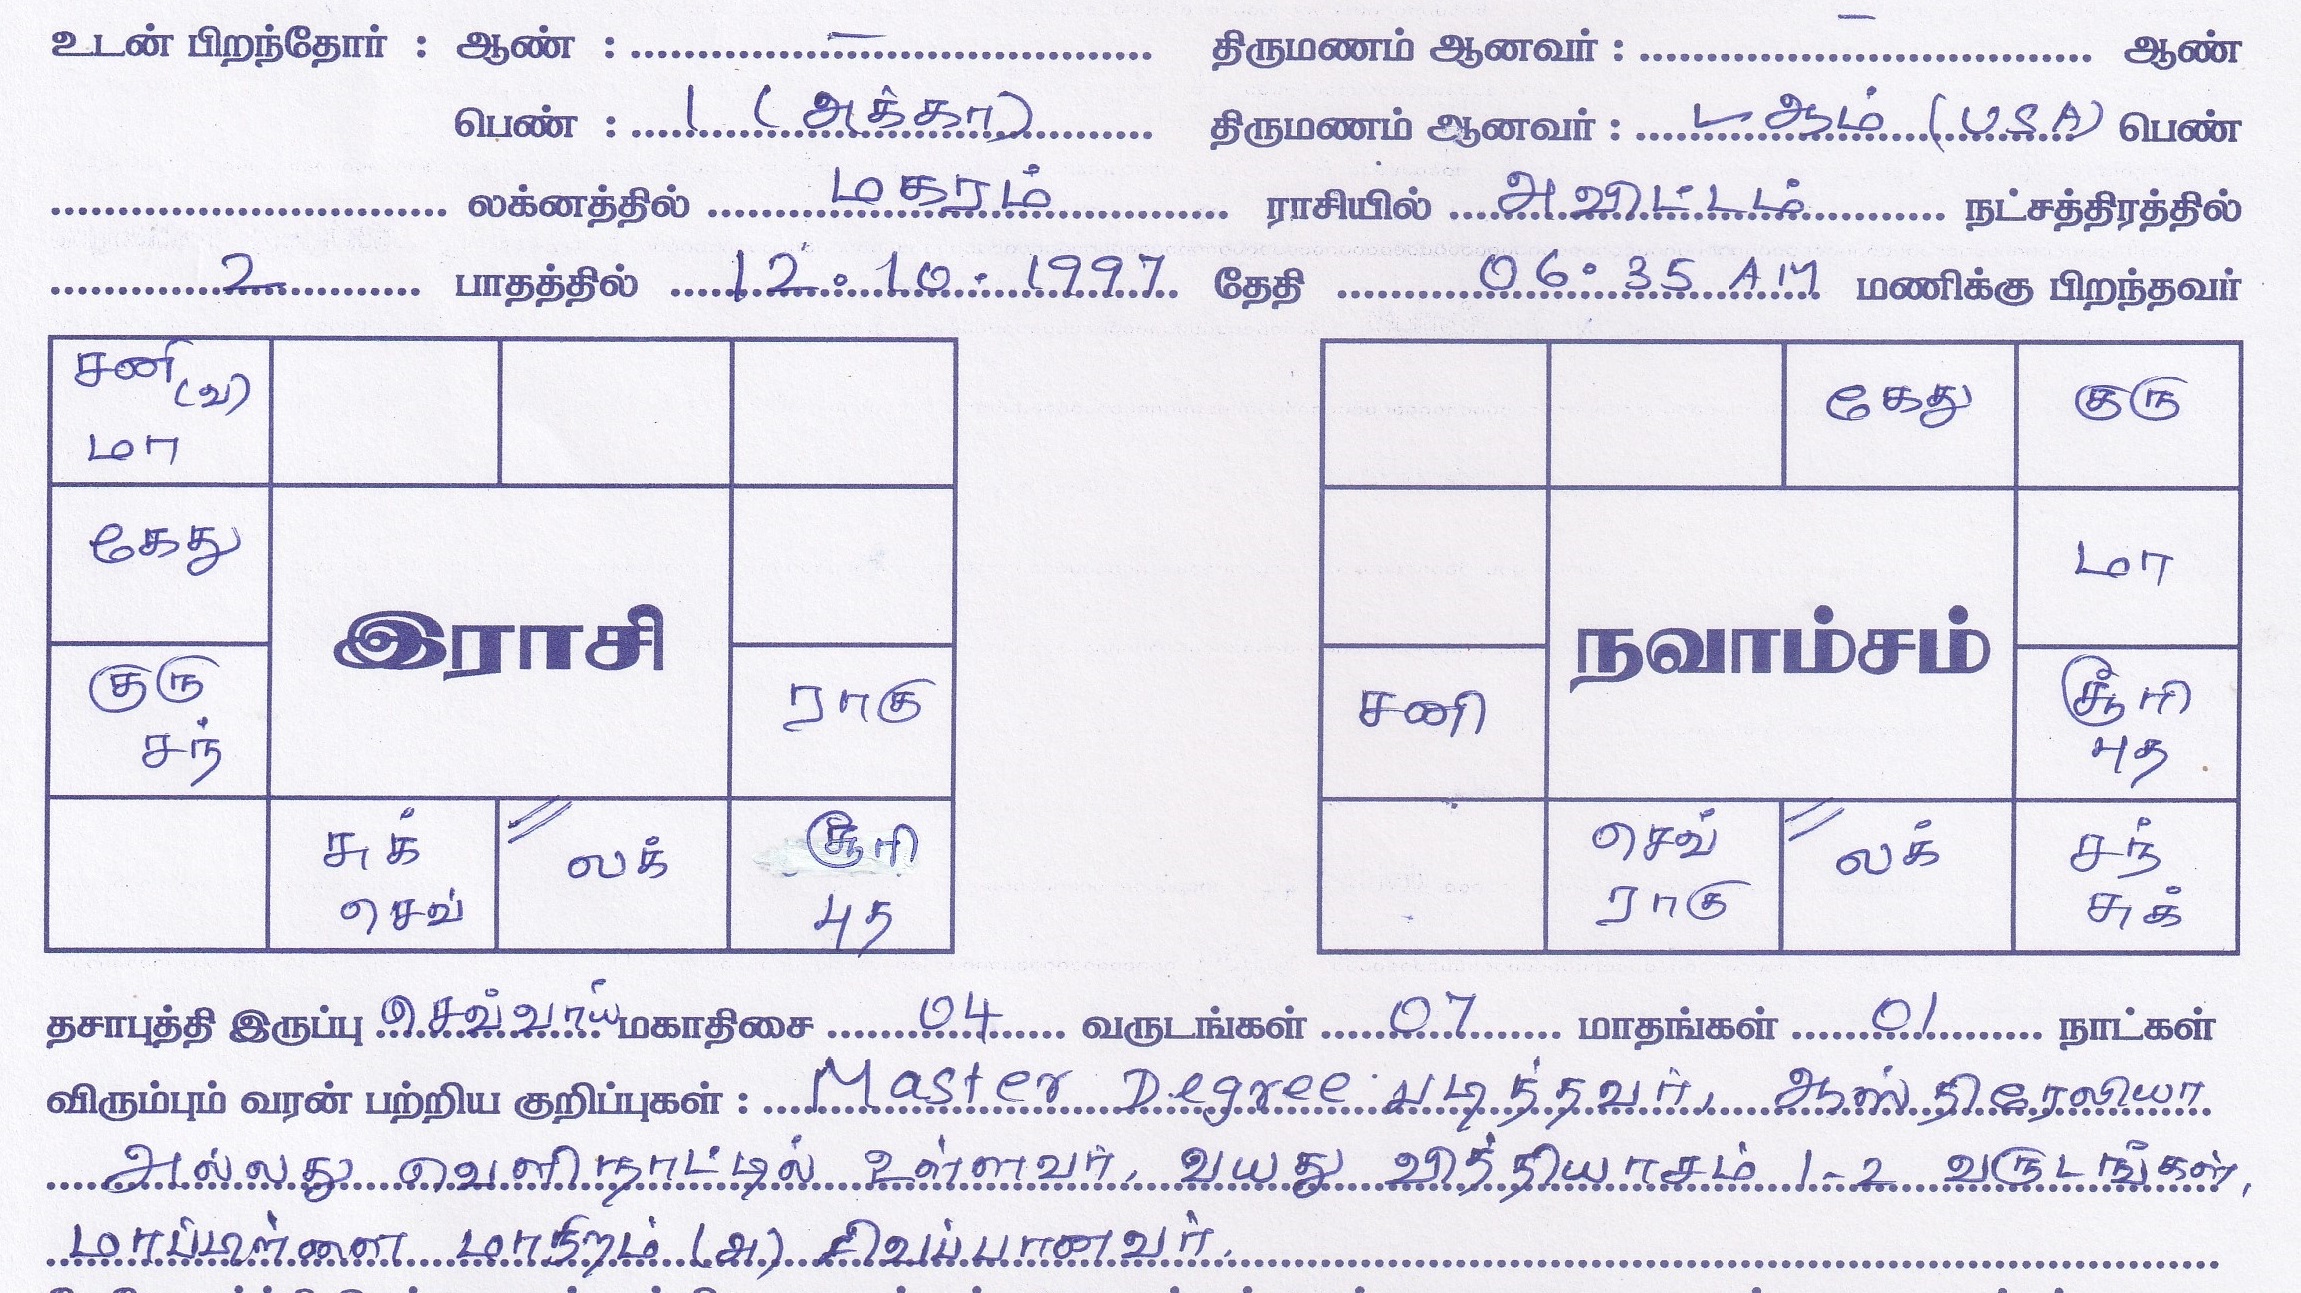 உடன் பிறந்தோர் : ஆண் : – திருமணம் ஆனவர் : – ஆண்
பெண் : 1 (அக்கா) திருமணம் ஆனவர் : ஆம் (USA) பெண்
லக்னத்தில் மகரம் ராசியில் அவிட்டம் நட்சத்திரத்தில்
2 பாதத்தில் 12.10.1997 தேதி 06.35 AM மணிக்கு பிறந்தவர்
சனி (வ) மா
கேது
குரு சந்
இராசி
ராகு
சுக் செவ்
லக்
சூரி புத
கேது
குரு
மா
சனி
நவாம்சம்
சூரி புத
செவ் ராகு
லக்
சந் சுக்
தசாபுத்தி இருப்பு செவ்வாய் மகாதிசை 04 வருடங்கள் 07 மாதங்கள் 01 நாட்கள்
விரும்பும் வரன் பற்றிய குறிப்புகள் : Master Degree படித்தவர், ஆஸ்திரேலியா
அல்லது வெளிநாட்டில் உள்ளவர், வயது வித்தியாசம் 1-2 வருடங்கள்,
மாப்பிள்ளை மாநிறம் (அ) சிவப்பானவர்.